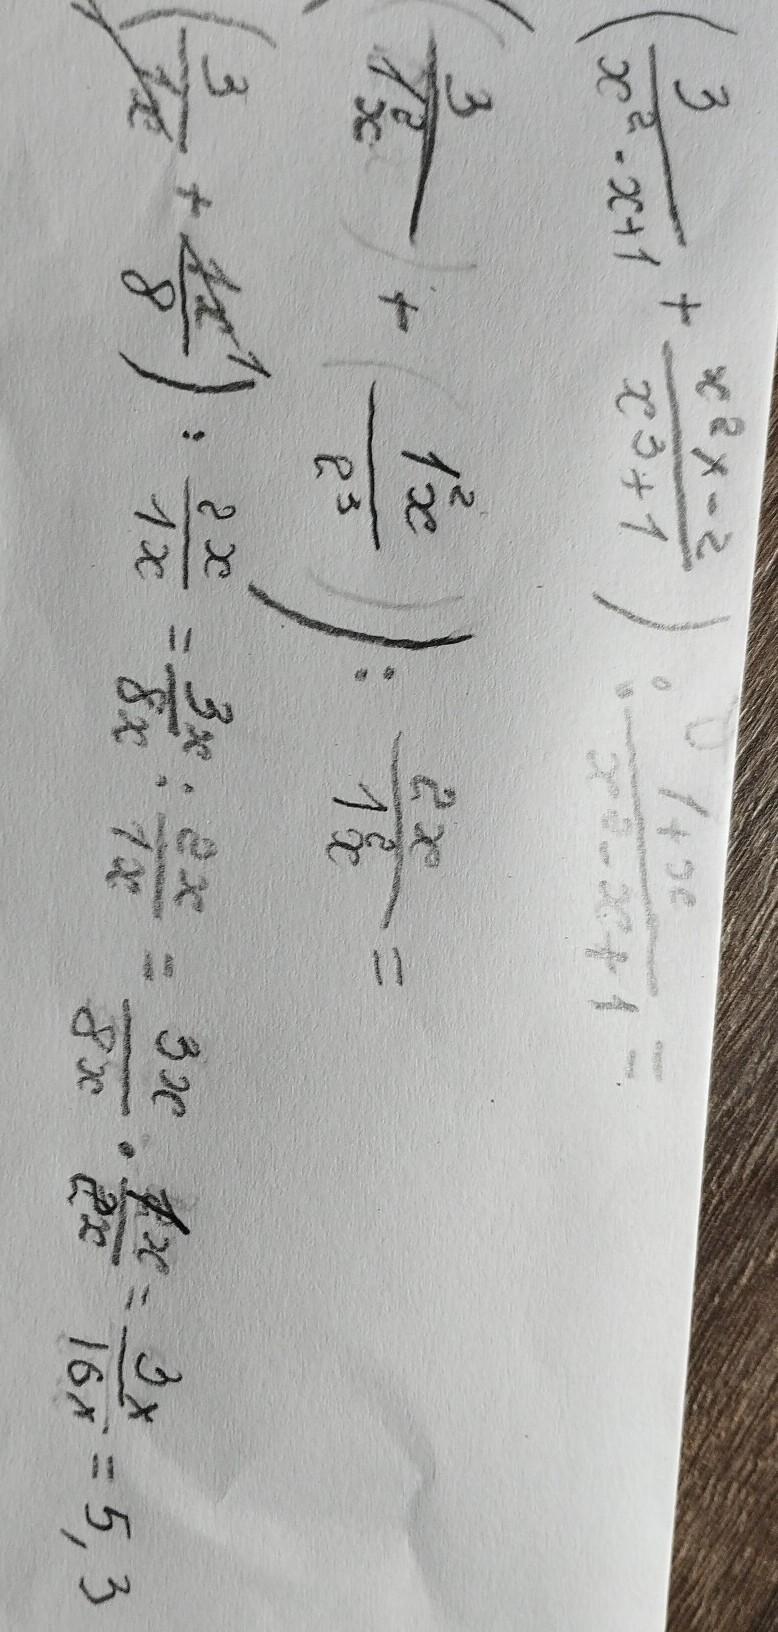 (3/(x² - x + 1) + (x²x - 2)/(x³ + 1)) : (1 + x)/(x² - x + 1) =
((3/1²x) + (1²x/2³)) : 2x/1²x =
(3/1x + 1x¹/8) : 2x/1x = 3x/8x : 2x/1x = 3x/8x · 1x/2x = 3x/16x = 5,3